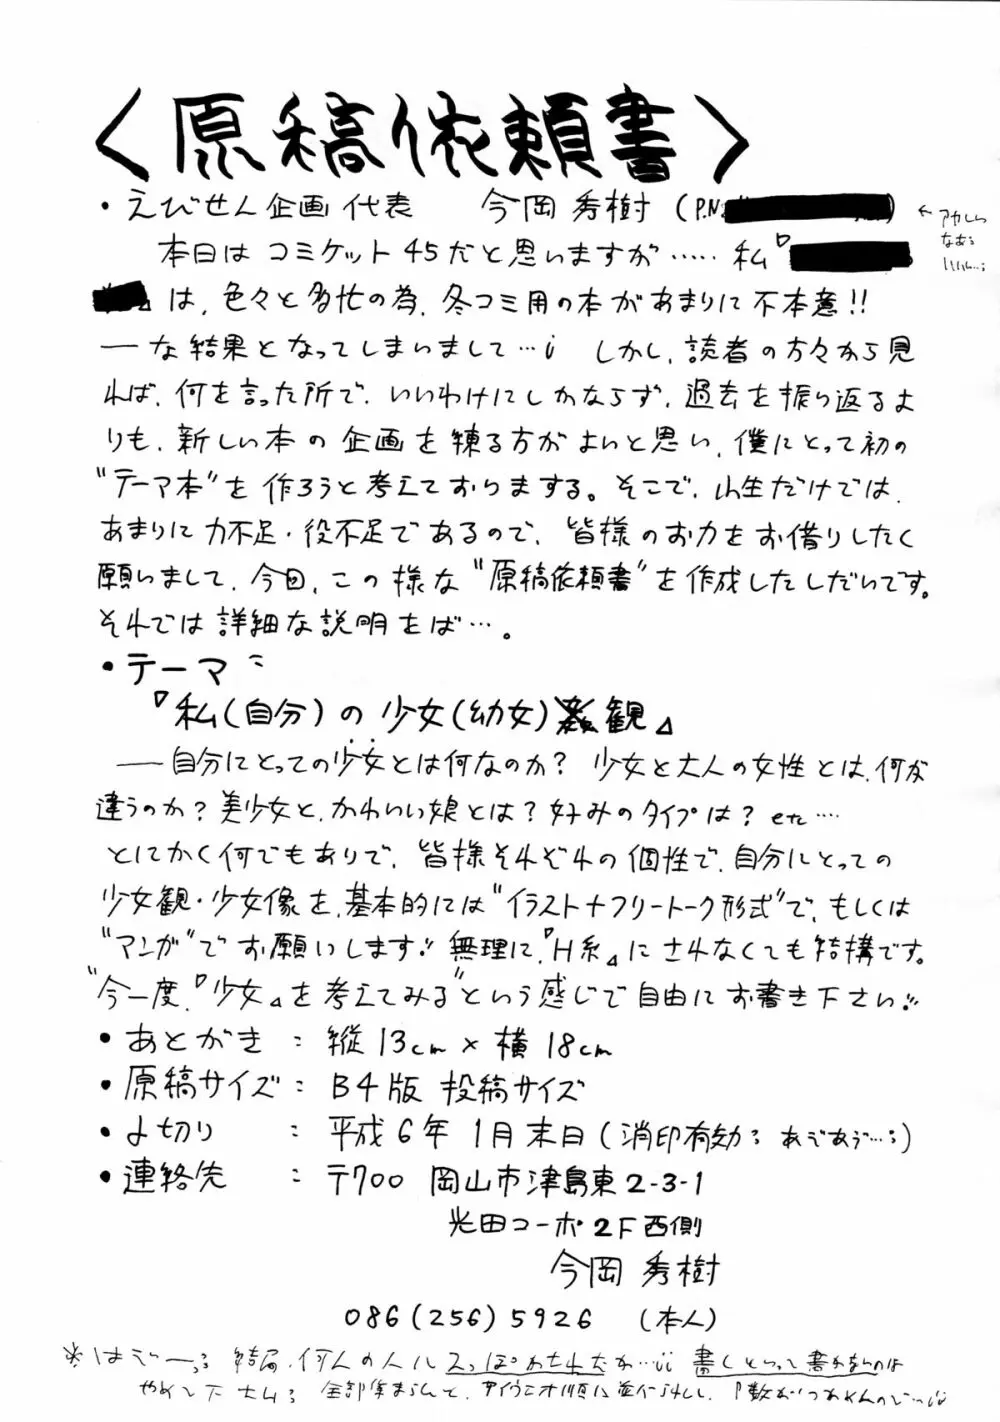 〈原稿依頼書〉
・えびせん企画 代表 今岡 秀樹 (P.N.
本日は コミケット45だと思いますが…… 私『
は、色々と多忙の為、冬コミ用の本があまりに不本意!!
――な結果となってしまいまして…； しかし、読者の方々から見
れば、何を言った所で、いいわけにしかならず、過去を振り返るよ
りも、新しい本の企画を練る方がよいと思い、僕にとって初の
"テーマ本"を作ろうと考えております。そこで、小生だけでは、
あまりに力不足・役不足であるので、皆様のお力をお借りしたく
願いまして、今回、この様な"原稿依頼書"を作成したしだいです。
それでは詳細な説明をば…。
・テーマ：
『私(自分)の少女(幼女)観』
――自分にとっての少女とは何なのか? 少女と大人の女性とは、何が
違うのか? 美少女と、かわいい娘とは? 好みのタイプは? etc……
とにかく何でもありで、皆様それぞれの個性で、自分にとっての
少女観・少女像を、基本的には"イラスト+フリートーク形式"で、もしくは
"マンガ"でお願いします!! 無理に、『H系』にされなくても結構です。
"今一度、『少女』を考えてみる"という感じで自由にお書き下さい!!
・あとがき : 縦13cm×横18cm
・原稿サイズ : B4版 投稿サイズ
・〆切り : 平成6年1月末日(消印有効;
・連絡先 : 〒700 岡山市津島東2-3-1
光田コーポ2F西側
今岡 秀樹
086(256)5926 (本人)
結局、何人の人に 書くといって書かないのは
やめて下さい; 全部集まらんと、アイウエオ順に並べられんし、